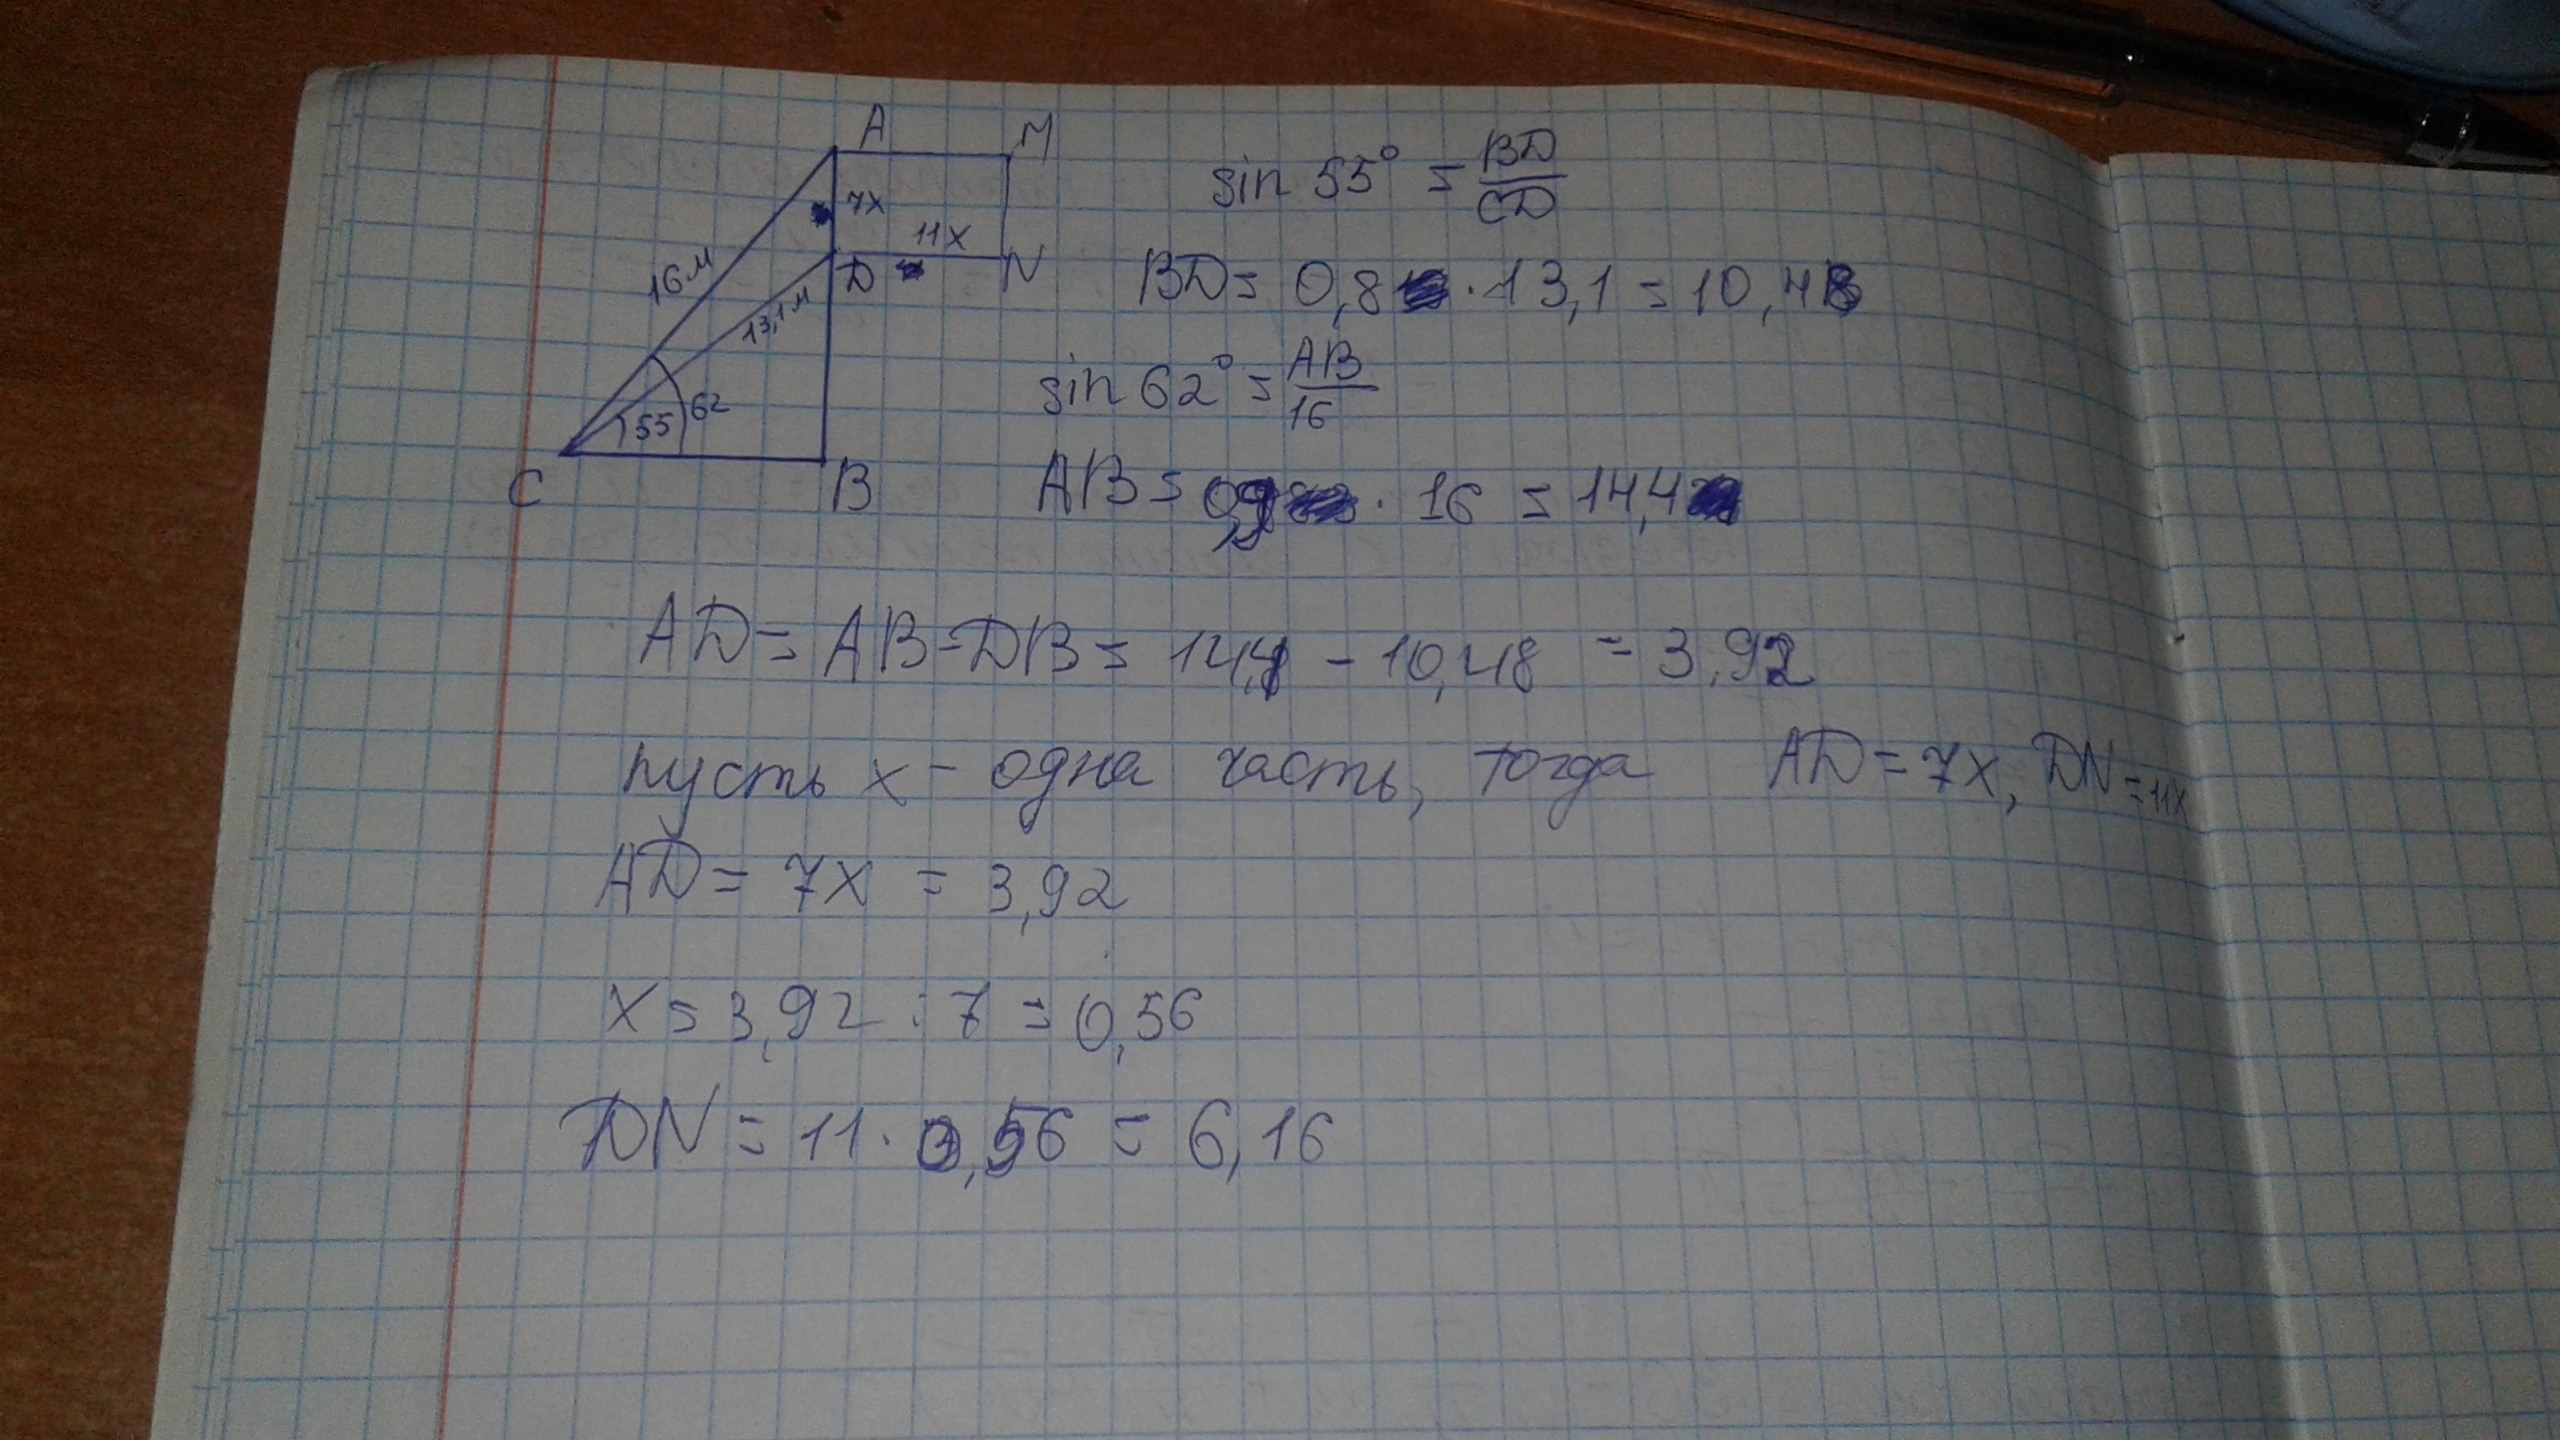 A M
7x
11x
D N
16м
13,1м
55 62
C B
sin 55° = BD/CD
BD = 0,8 · 13,1 = 10,48
sin 62° = AB/16
AB = 0,9 · 16 = 14,4
AD = AB - DB = 14,4 - 10,48 = 3,92
пусть x - одна часть, тогда AD = 7x, DN = 11x
AD = 7x = 3,92
x = 3,92 : 7 = 0,56
DN = 11 · 0,56 = 6,16